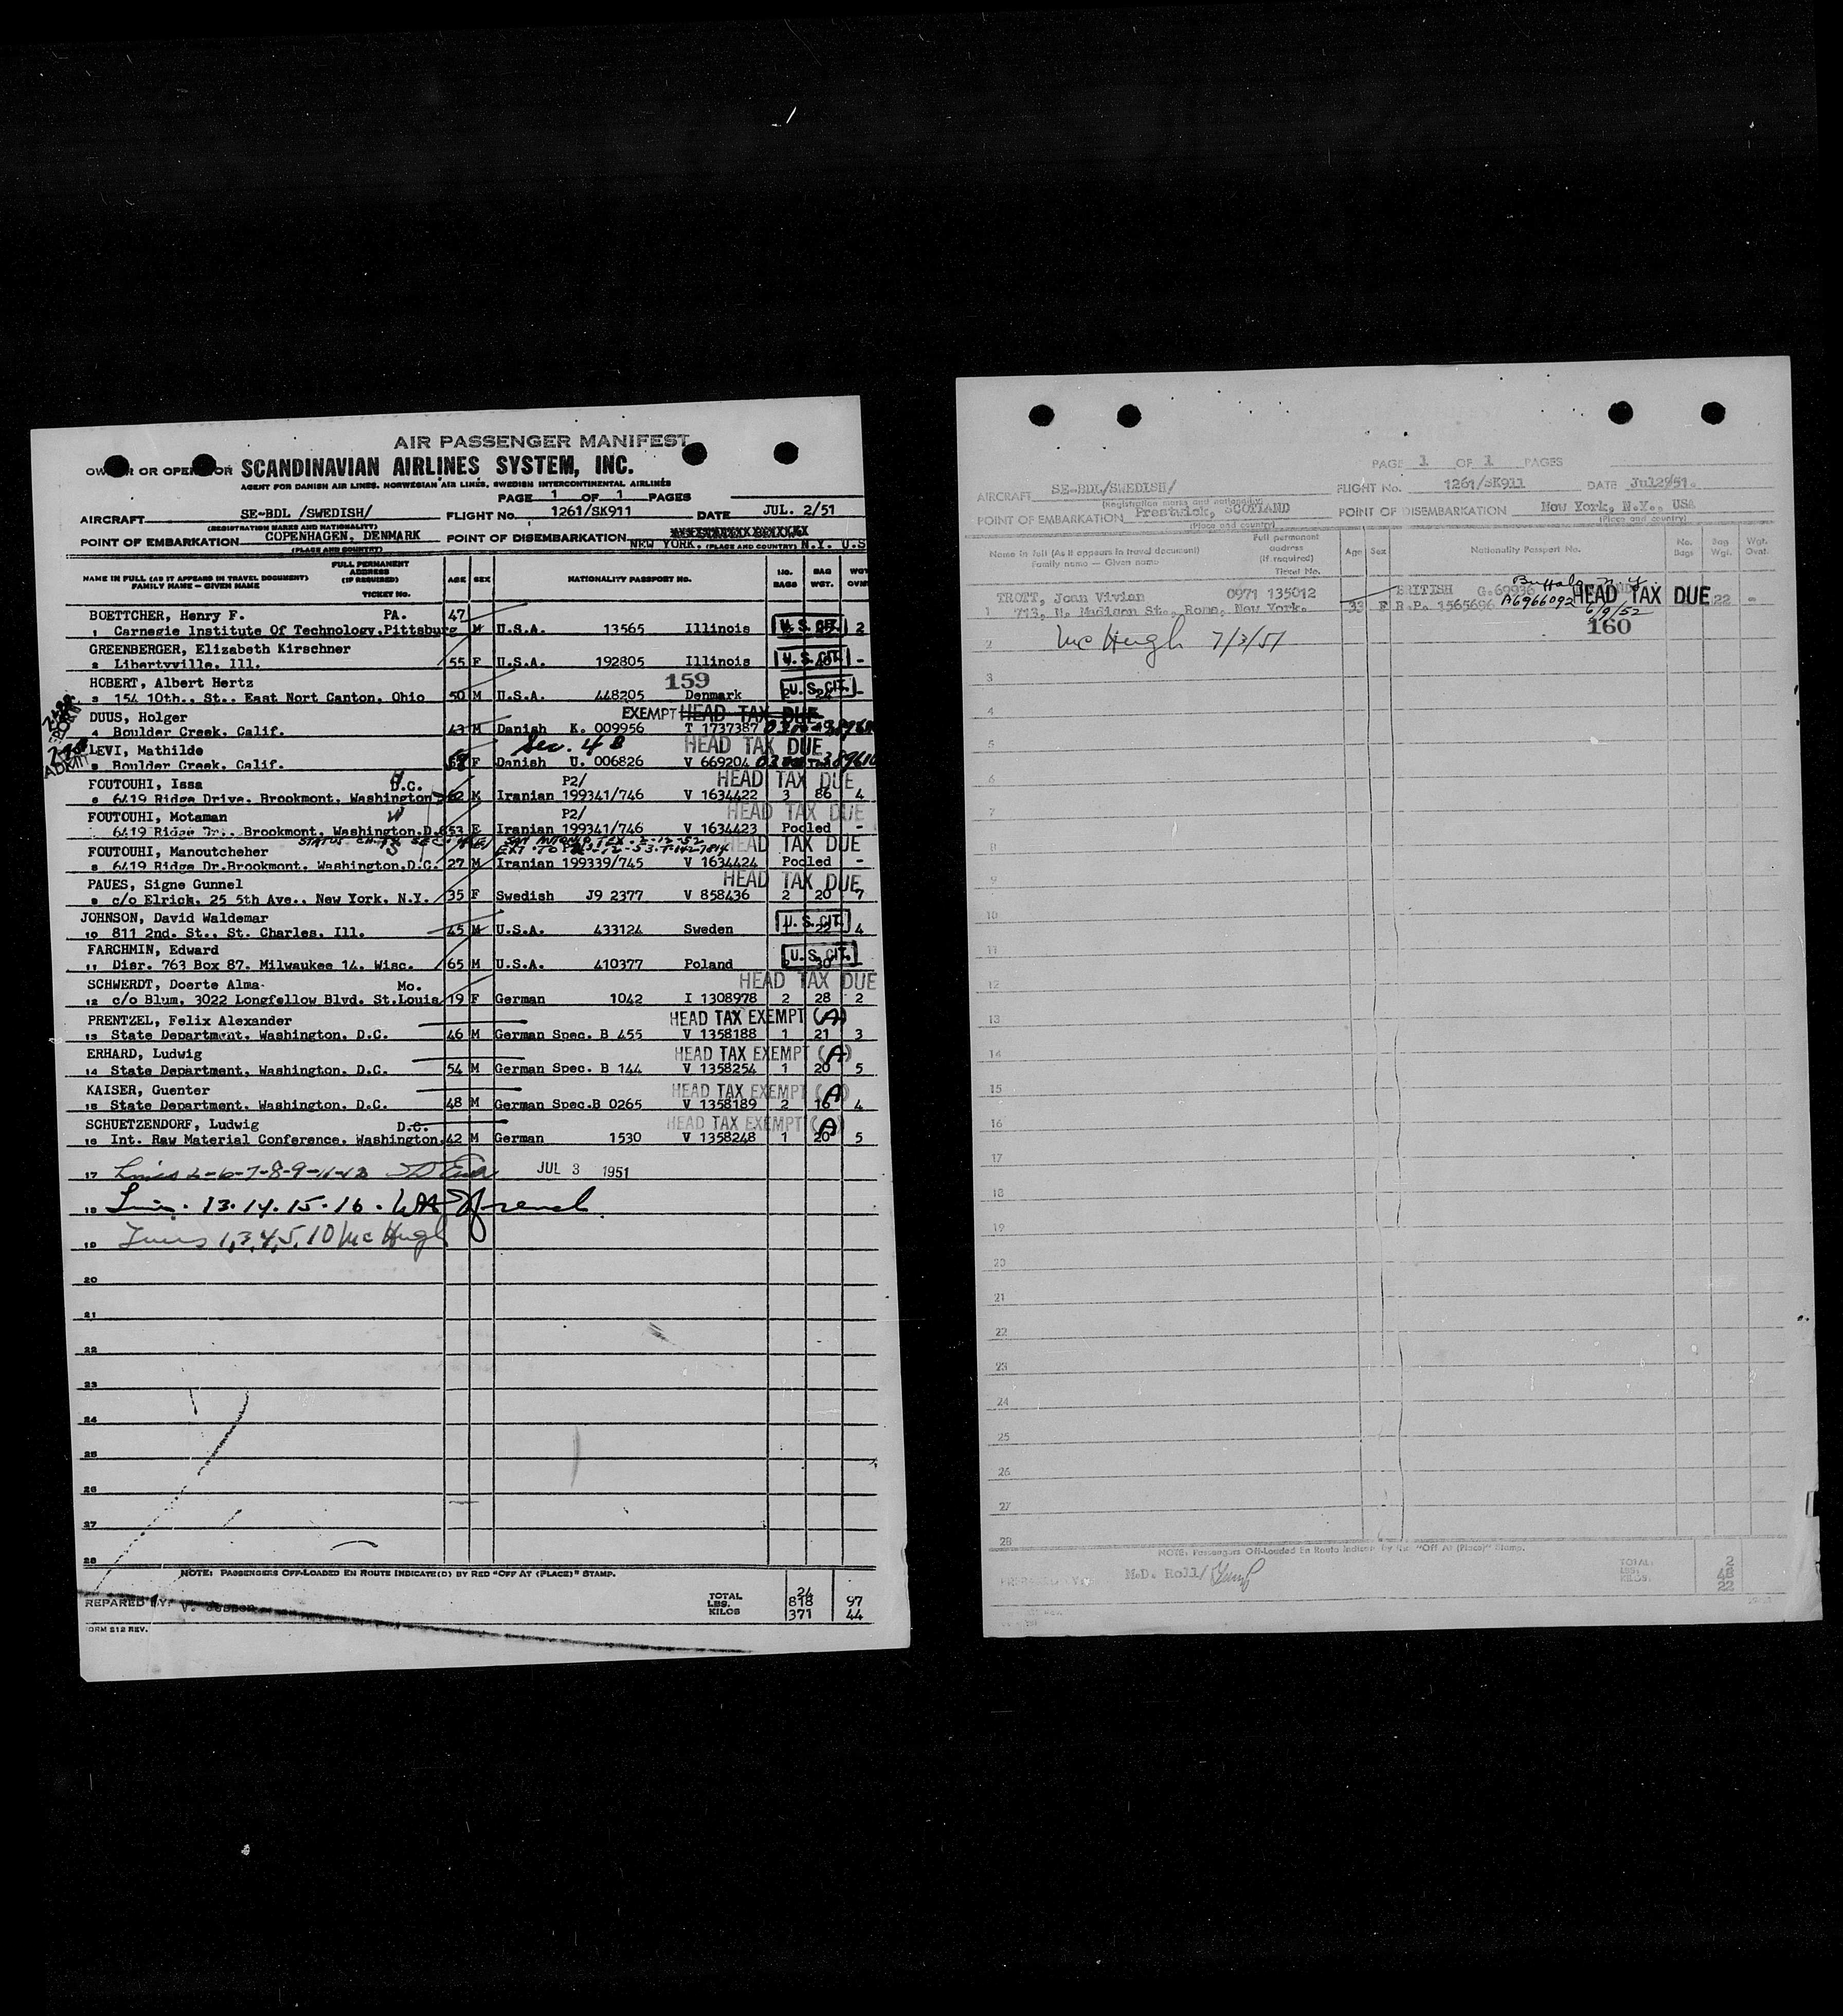 AIR PASSENGER MANIFEST
SCANDINAVIAN AIRLINES SYSTEM, INC.
AGENT FOR DANISH AIR LINES, NORWEGIAN AIR LINES, SWEDISH INTERCONTINENTAL AIRLINES
PAGE 1 OF 1 PAGES
AIRCRAFT SE-BDL /SWEDISH/ FLIGHT No. 1261/SK911 DATE JUL. 2/51
(REGISTRATION MARKS AND NATIONALITY)
POINT OF EMBARKATION COPENHAGEN, DENMARK POINT OF DISEMBARKATION NEW YORK. N.Y. U.S
(PLACE AND COUNTRY) (PLACE AND COUNTRY)
NAME IN FULL (AS IT APPEARS IN TRAVEL DOCUMENT) FAMILY NAME — GIVEN NAME FULL PERMANENT ADDRESS (IF REQUIRED) TICKET No. AGE SEX NATIONALITY PASSPORT No. NO. BAGS BAG WGT. WGT OVW
BOETTCHER, Henry F. PA. 47
1 Carnegie Institute Of Technology.Pittsburg M U.S.A. 13565 Illinois U. S. CIT. 2
GREENBERGER, Elizabeth Kirschner
2 Libertyville. Ill. 55 F U.S.A. 192805 Illinois U. S. CIT. -
HOBERT, Albert Hertz 159
3 154 10th.. St.. East Nort Canton, Ohio 50 M U.S.A. 448205 Denmark U. S. CIT. -
DUUS, Holger EXEMPT HEAD TAX DUE
4 Boulder Creek. Calif. 43 M Danish K. 009956 T 1737387
LEVI, Mathilde Sec. 4 B HEAD TAX DUE
5 Boulder Creek. Calif. F Danish U. 006826 V 669204
ADMIT
FOUTOUHI, Issa D.C. P2/ HEAD TAX DUE
6 6419 Ridge Drive. Brookmont. Washington 62 M Iranian 199341/746 V 1634422 3 86 4
FOUTOUHI, Motaman W P2/ HEAD TAX DUE
6419 Ridge Dr.. Brookmont. Washington.D.C 53 F Iranian 199341/746 V 1634423 Pooled -
SAN ANTONIO TEX. 2-12-52
FOUTOUHI, Manoutcheher S HEAD TAX DUE
8 6419 Ridge Dr.Brookmont. Washington.D.C. 27 M Iranian 199339/745 V 1634424 Pooled -
PAUES, Signe Gunnel HEAD TAX DUE
9 c/o Elrick. 25 5th Ave.. New York. N.Y. 35 F Swedish J9 2377 V 858436 2 20 7
JOHNSON, David Waldemar
10 811 2nd. St.. St. Charles. Ill. 45 M U.S.A. 433124 Sweden U. S. CIT. 4
FARCHMIN, Edward
11 Disr. 763 Box 87. Milwaukee 14. Wisc. 65 M U.S.A. 410377 Poland U. S. CIT.
SCHWERDT, Doerte Alma Mo. HEAD TAX DUE
12 c/o Blum, 3022 Longfellow Blvd. St.Louis 19 F German 1042 I 1308978 2 28 2
PRENTZEL, Felix Alexander HEAD TAX EXEMPT (A)
13 State Department. Washington. D.C. 46 M German Spec. B 455 V 1358188 1 21 3
ERHARD, Ludwig HEAD TAX EXEMPT (A)
14 State Department, Washington. D.C. 54 M German Spec. B 144 V 1358254 1 20 5
KAISER, Guenter HEAD TAX EXEMPT (A)
15 State Department. Washington. D.C. 48 M German Spec.B 0265 V 1358189 2 16 4
SCHUETZENDORF, Ludwig D.C. HEAD TAX EXEMPT (A)
16 Int. Raw Material Conference. Washington. 42 M German 1530 V 1358248 1 20 5
17 Lines 2-6-7-8-9-11-12 JUL 3 1951
18 Lines. 13.14.15.16.
19 Lines 1,3,4,5,10 McHugh
20
21
22
23
24
25
26
27
28
NOTE: PASSENGERS OFF-LOADED EN ROUTE INDICATE(D) BY RED "OFF AT (PLACE)" STAMP.
REPARED BY:
TOTAL 24
LBS. 818 97
KILOS 371 44
ORM 212 REV.
PAGE 1 OF 1 PAGES
AIRCRAFT SE-BDL/SWEDISH/ FLIGHT No. 1261/SK911 DATE Jul2951.
(Registration marks and nationality)
POINT OF EMBARKATION Prestwick, SCOTLAND POINT OF DISEMBARKATION New York, N.Y., USA
(Place and country) (Place and country)
Name in full (As it appears in travel document) Family name — Given name Full permanent address (If required) Ticket No. Age Sex Nationality Passport No. No. Bags Bag Wgt. Wgt. Ovwt.
Buffalo N.Y.
TROTT, Joan Vivian 0971 135012 BRITISH G.69936 HEAD TAX DUE
1 713, N. Madison St., Rome, New York. 33 F R.P. 1565696 A6966092 22 -
6/9/52
160
2 McHugh 7/3/51
3
4
5
6
7
8
9
10
11
12
13
14
15
16
17
18
19
20
21
22
23
24
25
26
27
28
NOTE: Passengers Off-Loaded En Route Indicate by Red "Off At (Place)" Stamp.
PREPARED BY: M.D. Roll/
TOTAL: 2
LBS. 48
KILOS. 22